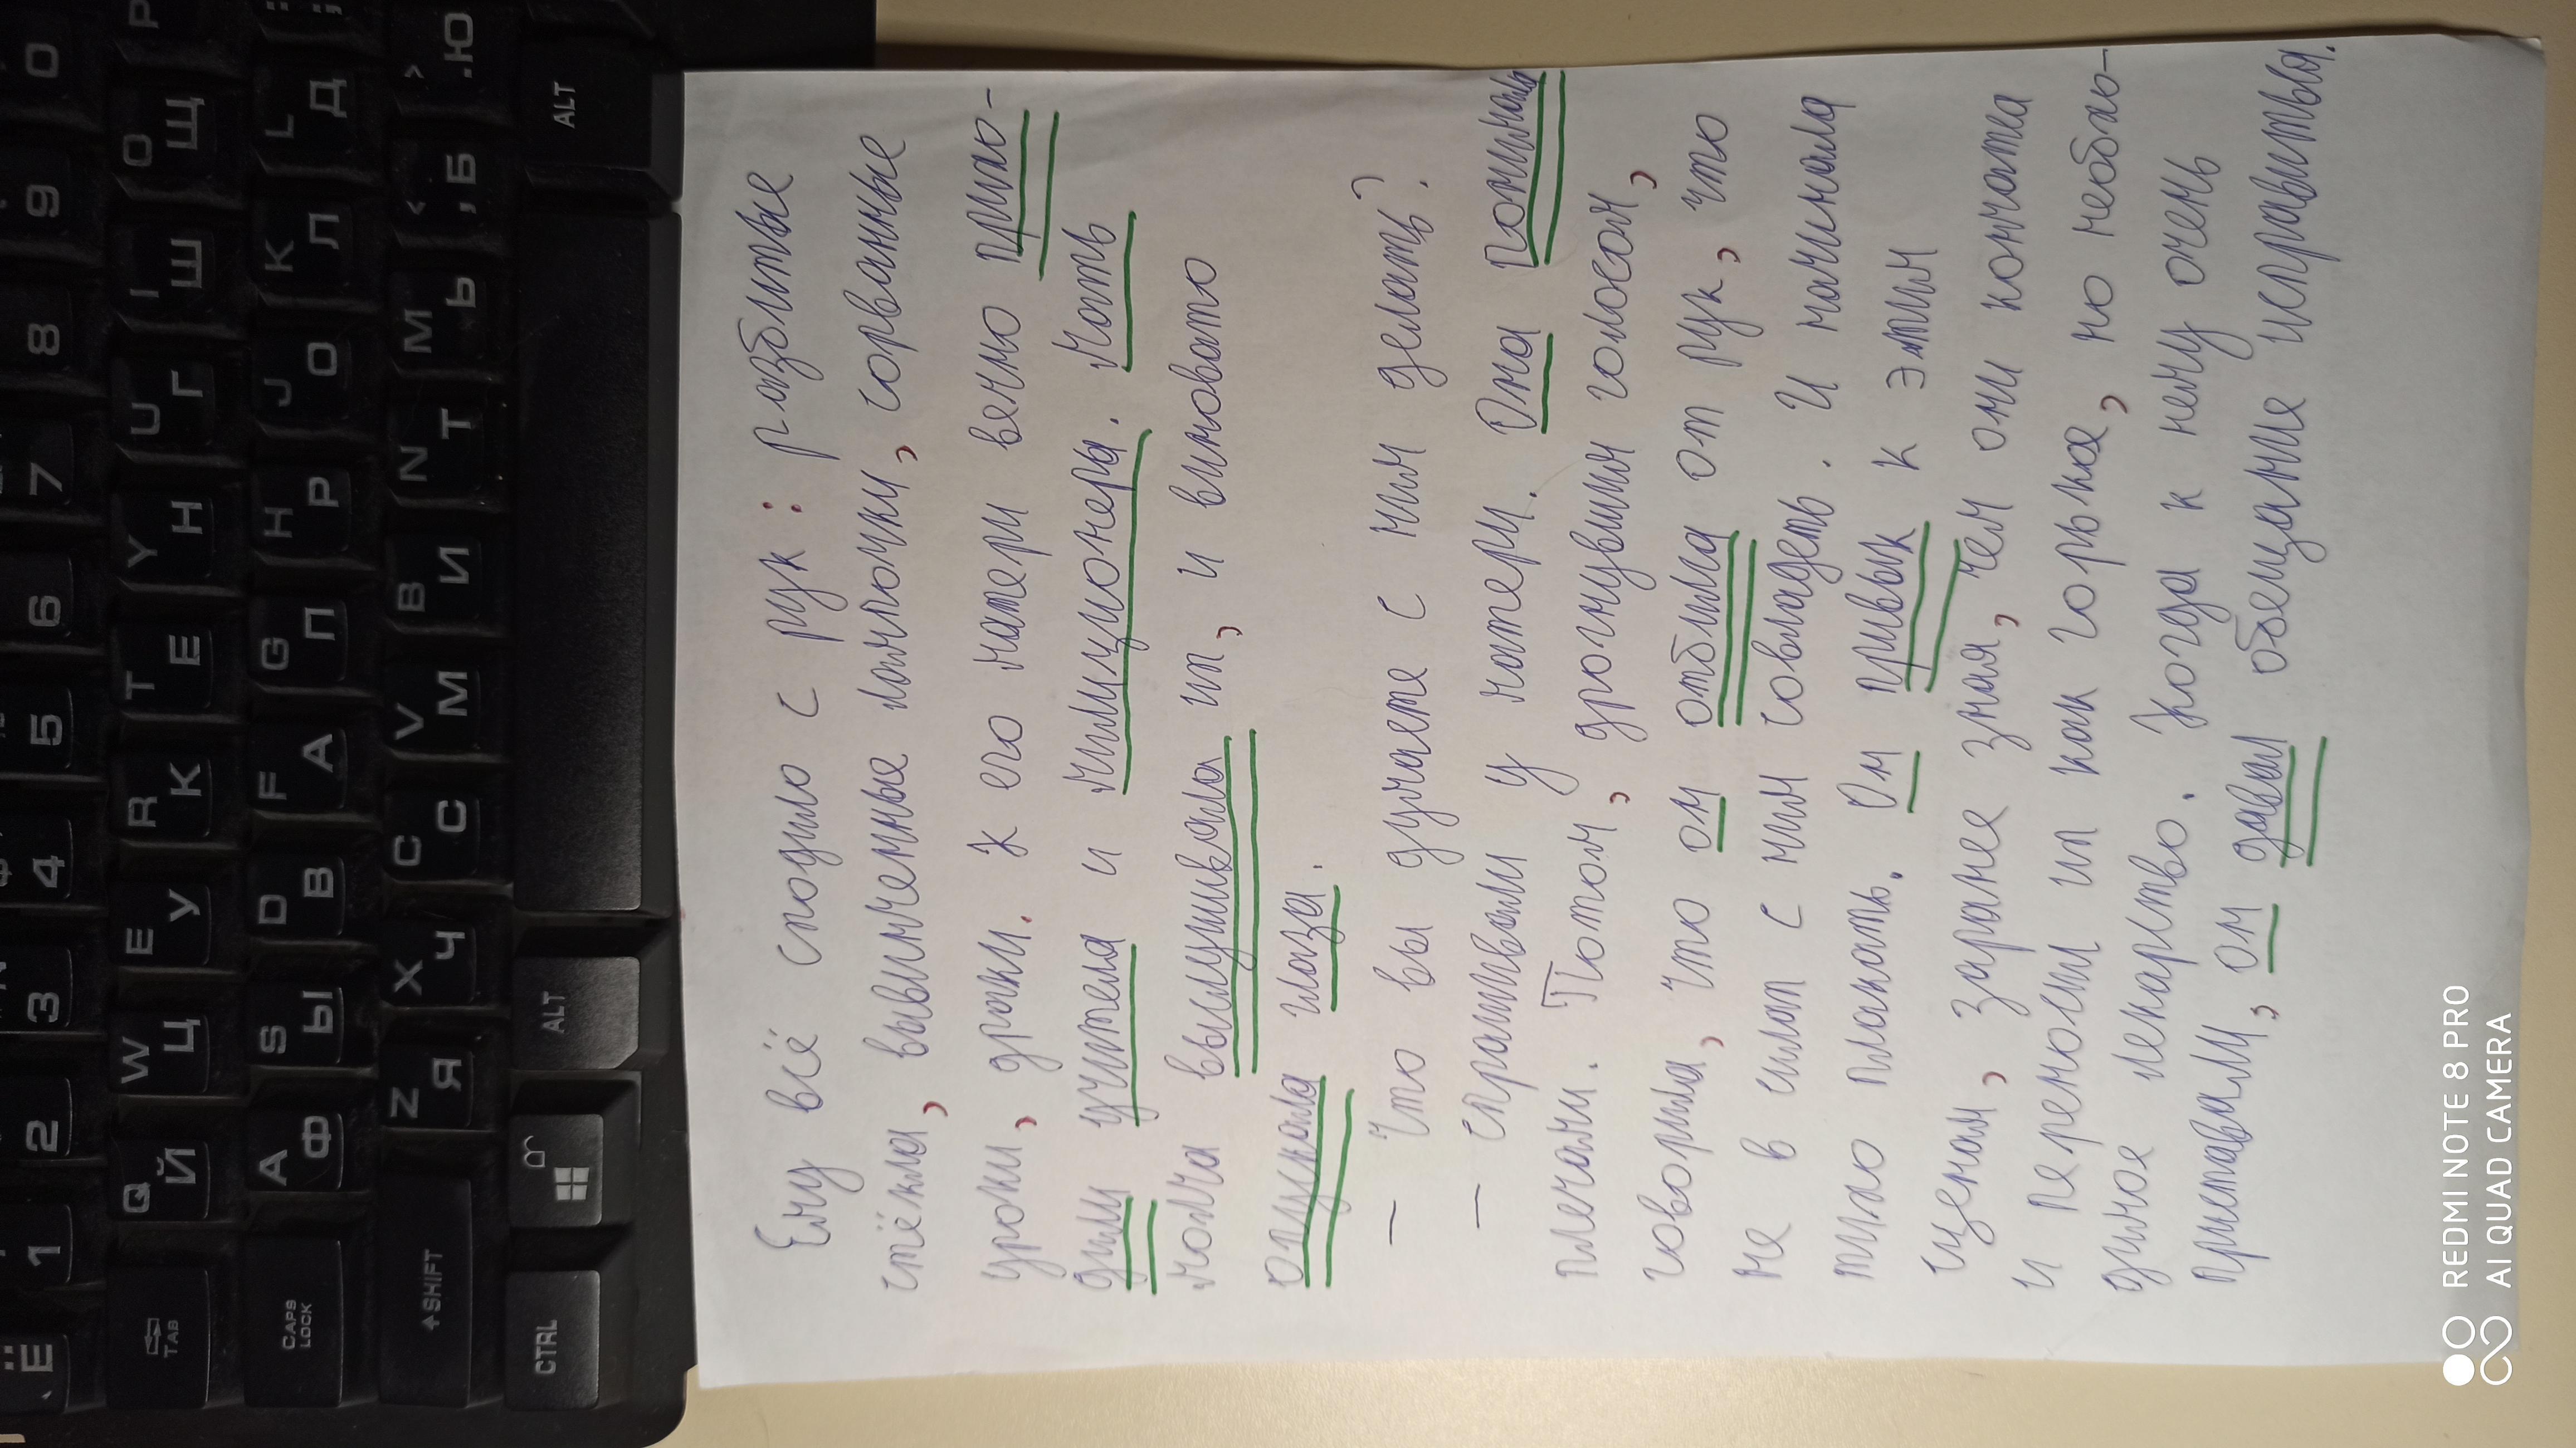 Ему всё сходило с рук: разбитые
стёкла, вывинченные лампочки, сорванные
уроки, драки. К его матери вечно прихо-
дили учителя и милиционеры. Мать
молча выслушивала их, и виновато
опускала глаза.
— Что вы думаете с ним делать?
— спрашивали у матери. Она пожимала
плечами. Потом, дрогнувшим голосом,
говорила, что он отбился от рук, что
не в силах с ним совладеть. И начинала
тихо плакать. Он привык к этим
сценам, заранее зная, чем они кончатся
и переносил их как горькое, но необхо-
димое лекарство. Когда к нему очень
приставали, он давал обещание исправиться.
Ё 1 2 3 4 5 6 7 8 9 0
TAB Q Й W Ц E У R К T Е Y Н U Г I Ш O Щ P
CAPS LOCK A Ф S Ы D В F А G П H Р J О K Л L Д
SHIFT Z Я X Ч C С V М B И N Т M Ь < , Б > . Ю
CTRL ALT ALT
REDMI NOTE 8 PRO
AI QUAD CAMERA